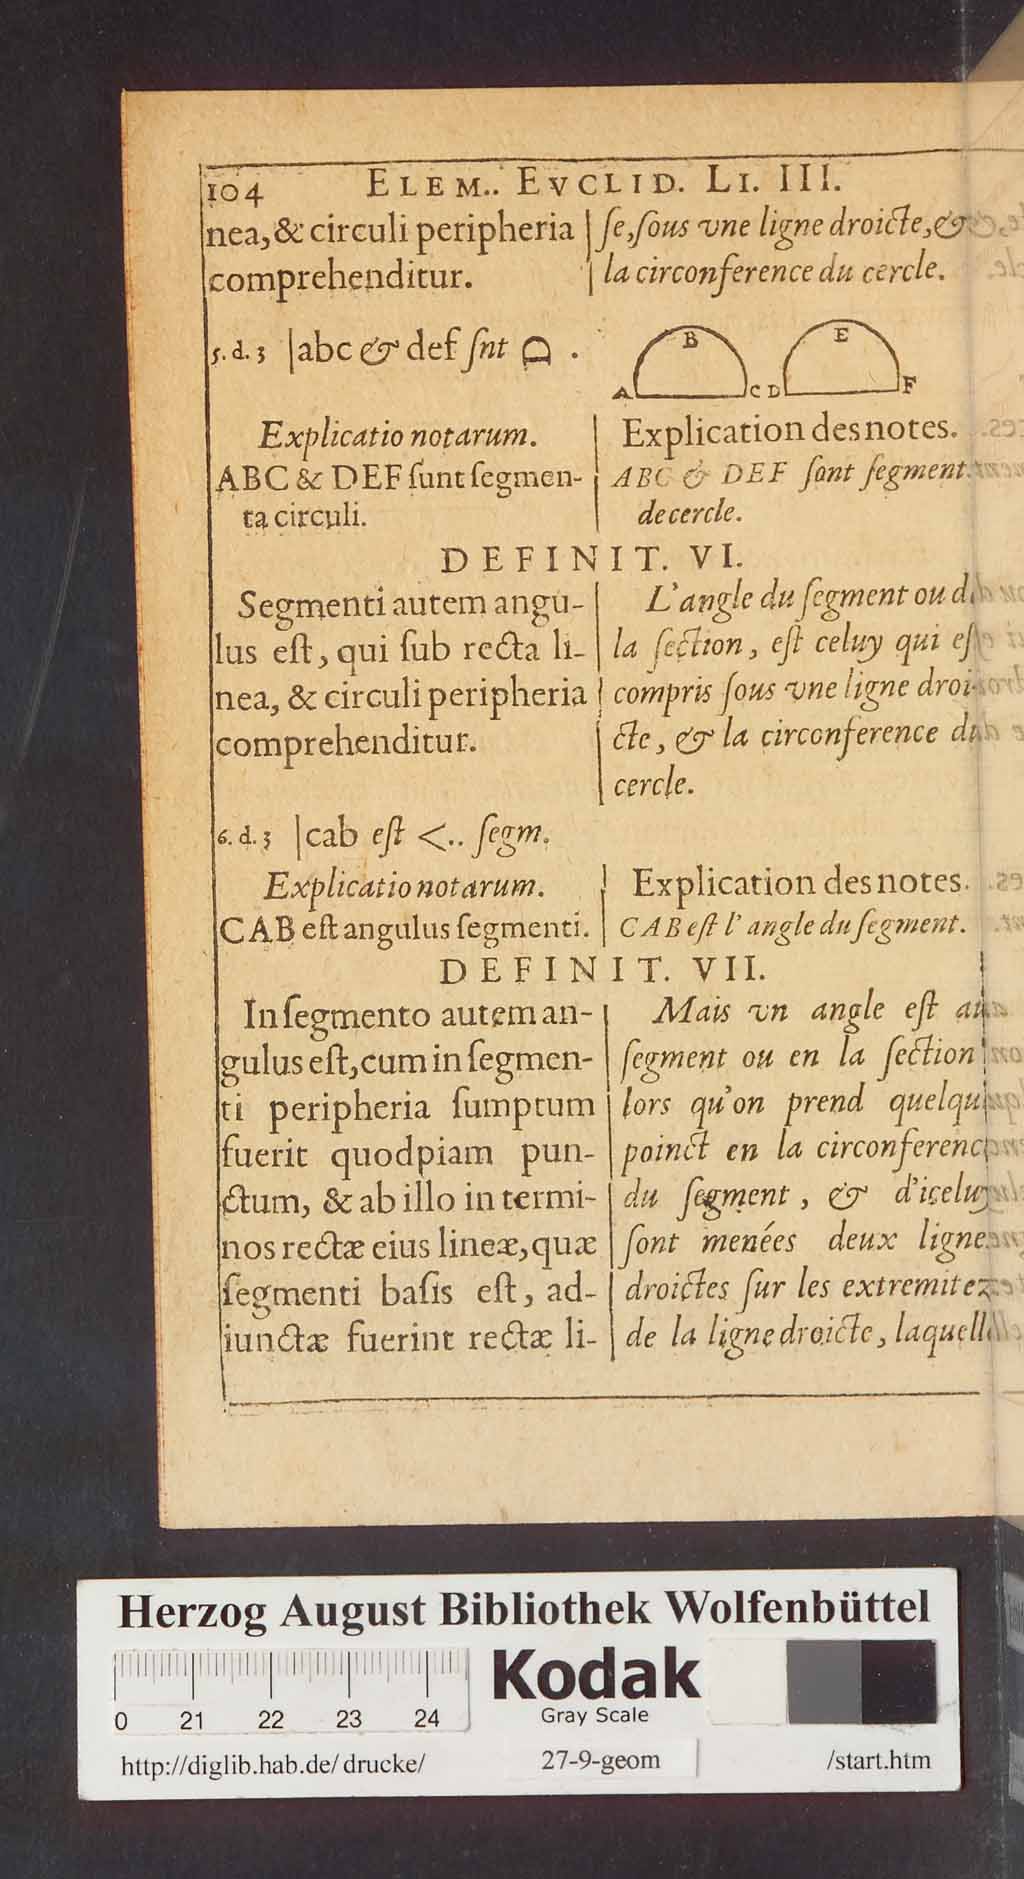 104 ELEM.. EVCLID. LI. III.
nea, & circuli peripheria
comprehenditur.
ſe, ſous vne ligne droicte, &
la circonference du cercle.
5. d. 3 |abc & def ſnt ⌓ .
A B C D E F
Explicatio notarum.
ABC & DEF ſunt ſegmen-
ta circuli.
Explication des notes.
ABC & DEF ſont ſegment
de cercle.
DEFINIT. VI.
Segmenti autem angu-
lus eſt, qui ſub recta li-
nea, & circuli peripheria
comprehenditur.
L'angle du ſegment ou
la ſection, eſt celuy qui
compris ſous vne ligne droi-
cte, & la circonference
cercle.
6. d. 3 |cab eſt <.. ſegm.
Explicatio notarum.
CAB eſt angulus ſegmenti.
Explication des notes.
CAB eſt l'angle du ſegment.
DEFINIT. VII.
In ſegmento autem an-
gulus eſt, cum in ſegmen-
ti peripheria ſumptum
fuerit quodpiam pun-
ctum, & ab illo in termi-
nos rectæ eius lineæ, quæ
ſegmenti baſis eſt, ad-
iunctæ fuerint rectæ li-
Mais vn angle eſt
ſegment ou en la ſection
lors qu'on prend
poinct en la
du ſegment, & d'iceluy
ſont menées deux
droictes ſur les extremitez
de la ligne droicte,
Herzog August Bibliothek Wolfenbüttel
0 21 22 23 24
Kodak
Gray Scale
http://diglib.hab.de/drucke/ 27-9-geom /start.htm